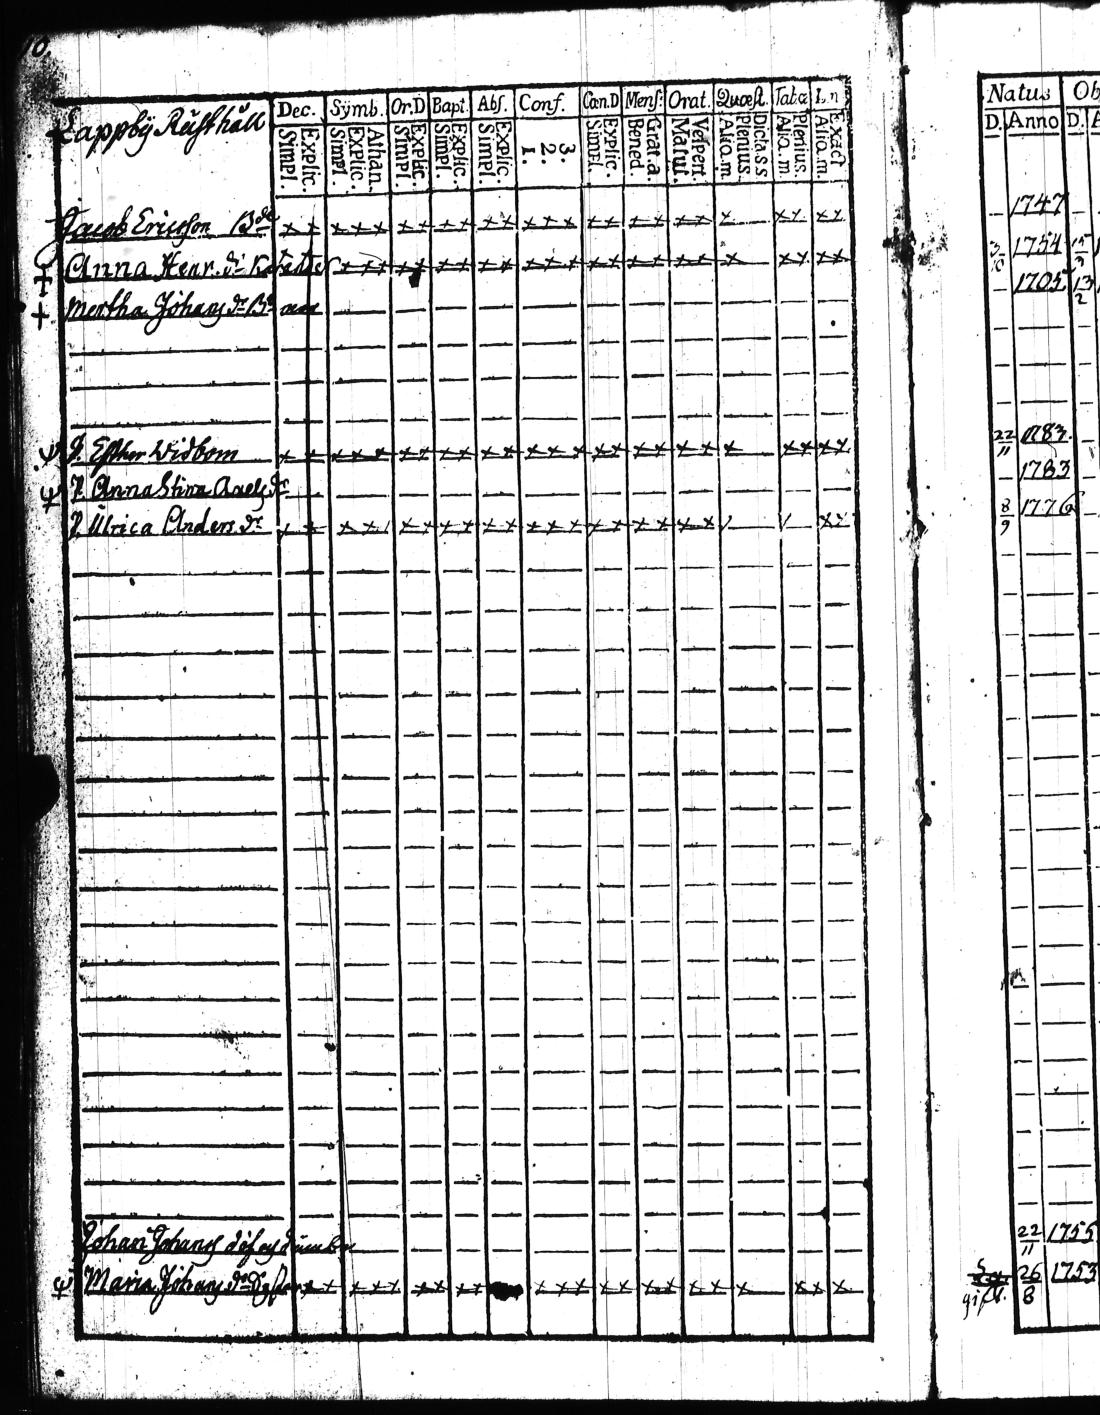 10.
Lappbÿ Rüsthåll
Dec. Sÿmb. Or.D Bapt. Abs. Conf. Cœn.D Mens: Orat. Quæst. Tabæ
Natus Ob
D. Anno D. A
Explic. Simpl. Athan. Explic. Simpl. Explic. Simpl. Explic. Simpl. Explic. Simpl. 3. 2. 1. Explic. Simpl. Grat.a. Bened. Vespert. Matut. Dicta.s.s Plenius. Aliq.m. Plenius. Aliq.m Exact Aliq.m.
Jacob Ericsson Bde 1747
Anna Henr. dr 3/10 1754 15/3
Mertha Johans dr 1705 13/2
P. Esther Widbom 22/11 1783.
P. Anna Stina Axels dr 1783
P. Ulrica Anders. dr 8/9 1776
Johan Johans 22/11 1755
Maria Johans dr 26/8 1753
gift.